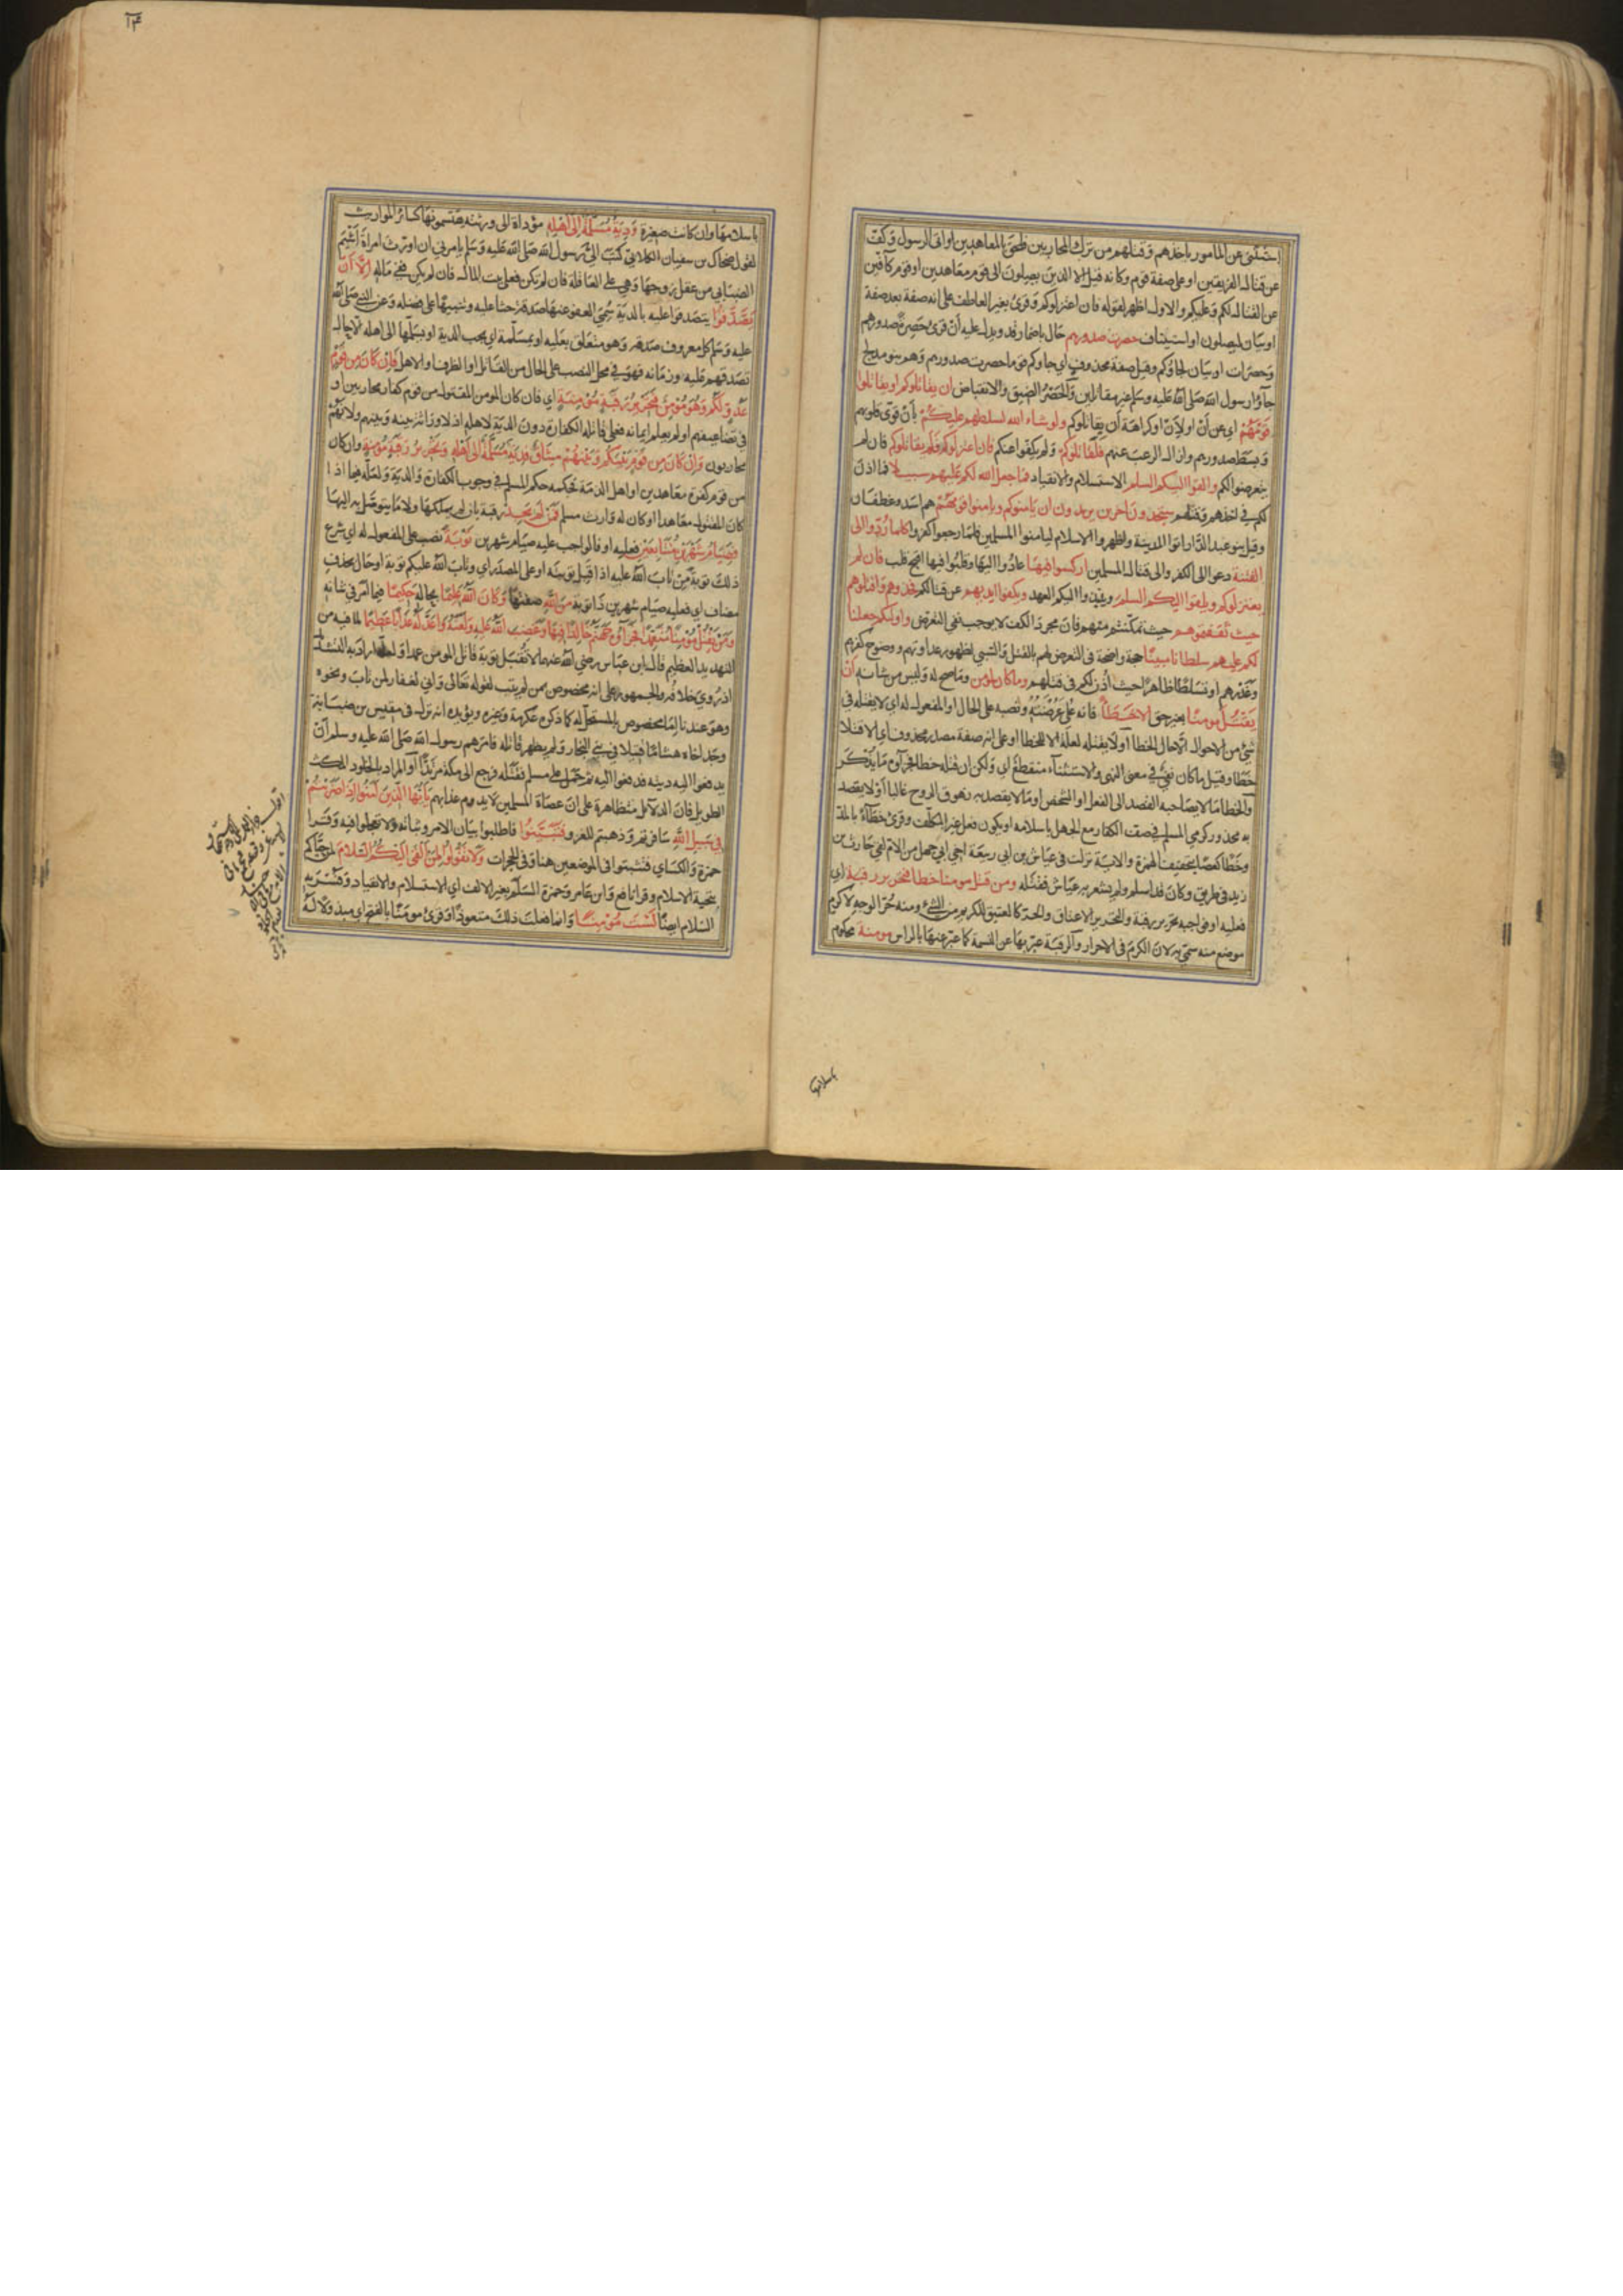 استثنى عن المامور باخذهم وقتلهم من ترك المحاربين فلحق بالمعاهدين او اتى الرسول وكف
عن قتال الفريقين او على صفة قوم وكانه قيل الا الذين يصلون الى قوم معاهدين او قوم كافين
عن القتال لكم وعليكم والاول اظهر لقوله فان اعتزلوكم وقرئ بغير العاطف على انه صفة بعد صفة
او بيان ليصلون او استيناف حصرت صدورهم حال باضمار قد ويدل عليه أن قرئ حصرة صدورهم
وحصرات او بيان لجاؤكم وقيل صفة محذوف اي جاوكم قوما حصرت صدورهم وهم بنو مدلج
جاؤا رسول الله صلى الله عليه وسلم غير مقاتلين والحصر الضيق والانقباض ان يقاتلوكم او يقاتلوا
قومهم اي عن أن او لأن او كراهة أن يقاتلوكم ولو شاء الله لسلطهم عليكم بأن قوى قلوبهم
وبسط صدورهم وازال الرعب عنهم فلقاتلوكم ولم يكفوا عنكم فان اعتزلوكم فلم يقاتلوكم فان لم
يتعرضوا لكم والقوا اليكم السلم الاستسلام والانقياد فما جعل الله لكم عليهم سبيلا فما اذن
لكم في اخذهم وقتلهم ستجدون آخرين يريدون ان يامنوكم ويامنوا قومهم هم اسد وغطفان
وقيل بنو عبد الدار اتوا المدينة واظهروا الاسلام ليامنوا المسلمين فلما رجعوا كفروا كلما ردوا الى
الفتنة دعوا الى الكفر والى قتال المسلمين اركسوا فيها عادوا اليها وقلبوا فيها اقبح قلب فان لم
يعتزلوكم ويلقوا اليكم السلم وينبذوا اليكم العهد ويكفوا ايديهم عن قتالكم فخذوهم واقتلوهم
حيث ثقفتموهم حيث تمكنتم منهم فان مجرد الكف لا يوجب نفي التعرض واولئكم جعلنا
لكم عليهم سلطانا مبينا حجة واضحة في التعرض لهم بالقتل والسبي لظهور عداوتهم ووضوح كفرهم
وغدرهم او تسلطا ظاهرا حيث اذن لكم في قتلهم وما كان لمؤمن وما صح له وليس من شانه أن
يقتل مومنا بغير حق الا خطأ فانه على عرضته ونصبه على الحال او المفعول له اي لا يقتله في
شئ من الاحوال الا حال الخطأ او لا يقتله لعلة الا للخطا او على انه صفة مصدر محذوف اي الا قتلا
خطا وقيل ما كان نفي في معنى النهي والاستثناء منقطع اي ولكن ان قتله خطا فجزاؤه ما يذكر
والخطا ما لا يصاحبه القصد الى الفعل او الشخص او ما لا يقصد به زهوق الروح غالبا أو لا يقصد
به محذور كرمي المسلم في صف الكفار مع الجهل باسلامه او يكون فعل غير المكلف وقرئ خطآء بالمد
وخطا كعصا بتخفيف الهمزة والاية نزلت في عياش بن ابي ربيعة اخي ابي جهل من الام لقي حارث بن
زيد في طريق وكان قد اسلم ولم يشعر به عياش فقتله ومن قتل مومنا خطا فتحرير رقبة اي
فعليه او فواجبه تحرير رقبة والتحرير الاعتاق والحر كالعتيق للكريم من الشئ ومنه حر الوجه لاكرم
موضع منه سمي به لان الكرم في الاحرار والرقبة عبر بها عن النسمة كما عبر عنها بالراس مومنة محكوم
باسلامها
باسلامها وان كانت صغيرة ودية مسلمة الى اهله مؤداة الى ورثته يقتسمونها كسائر المواريث
لقول ضحاك بن سفيان الكلابي كتب الي رسول الله صلى الله عليه وسلم يامرني ان اورث امراة اشيم
الضبابي من عقل زوجها وهي على العاقلة فان لم يكن فعلى بيت المال فان لم يكن ففي ماله الا أن
يصدقوا يتصدقوا عليه بالدية سمي العفو عنها صدقة حثا عليه وتنبيها على فضله وعن النبي صلى الله
عليه وسلم كل معروف صدقة وهو متعلق بعليه او بمسلمة اي يجب الدية او يسلمها الى اهله الا حال
تصدقهم عليه او زمانه فهو في محل النصب على الحال من القاتل او الظرف او الاهل فان كان من قوم
عدو لكم وهو مؤمن فتحرير رقبة مؤمنة اي فان كان المومن المقتول من قوم كفار محاربين او
في تضاعيفهم او لم يعلم ايمانه فعلى قاتله الكفارة دون الدية لاهله اذ لا وراثة بينه وبينهم ولانهم
محاربون وان كان من قوم بينكم وبينهم ميثاق فدية مسلمة الى اهله وتحرير رقبة مؤمنة وان كان
من قوم كفرة معاهدين او اهل الذمة فحكمه حكم المسلم في وجوب الكفارة والدية ولعله فيما اذا
كان المقتول معاهدا او كان له وارث مسلم فمن لم يجد رقبة بان لم يملكها ولا ما يتوصل به اليها
فصيام شهرين متتابعين فعليه او فالواجب عليه صيام شهرين توبة نصب على المفعول له اي شرع
ذلك توبة من تاب الله عليه اذا قبل توبته او على المصدر اي وتاب الله عليكم توبة او حال بحذف
مضاف اي فعليه صيام شهرين ذا توبة من الله صفتها وكان الله عليما بحاله حكيما فيما امر في شانه
ومن يقتل مؤمنا متعمدا فجزاؤه جهنم خالدا فيها وغضب الله عليه ولعنه واعد له عذابا عظيما لما فيه من
التهديد العظيم قال ابن عباس رضي الله عنهما لا تقبل توبة قاتل المومن عمدا ولعله اراد به التشديد
اذ روي خلافه والجمهور على انه مخصوص بمن لم يتب لقوله تعالى واني لغفار لمن تاب ونحوه
وهو عندنا اما مخصوص بالمستحل له كما ذكره عكرمة وغيره ويؤيده انه نزل في مقيس بن ضبابة
وجد اخاه هشاما قتيلا في بني النجار ولم يظهر قاتله فامرهم رسول الله صلى الله عليه وسلم أن
يدفعوا اليه ديته فدفعوا اليه ثم حمل على مسلم فقتله فرجع الى مكة مرتدا أو المراد بالخلود المكث
الطويل فان الدلائل متظاهرة على ان عصاة المسلمين لا يدوم عذابهم يا ايها الذين آمنوا اذا ضربتم
في سبيل الله سافرتم وذهبتم للغزو فتبينوا فاطلبوا بيان الامر وثباته ولا تعجلوا فيه وقرا
حمزة والكساي فتثبتوا في الموضعين هنا وفي الحجرات ولا تقولوا لمن القى اليكم السلام لمن حياكم
بتحية الاسلام وقرا نافع وابن عامر وحمزة السلم بغير الالف اي الاستسلام والانقياد وفسر به
السلام ايضا لست مؤمنا وانما فعلت ذلك متعوذا وقرئ مومنا بالفتح اي مبذولا له